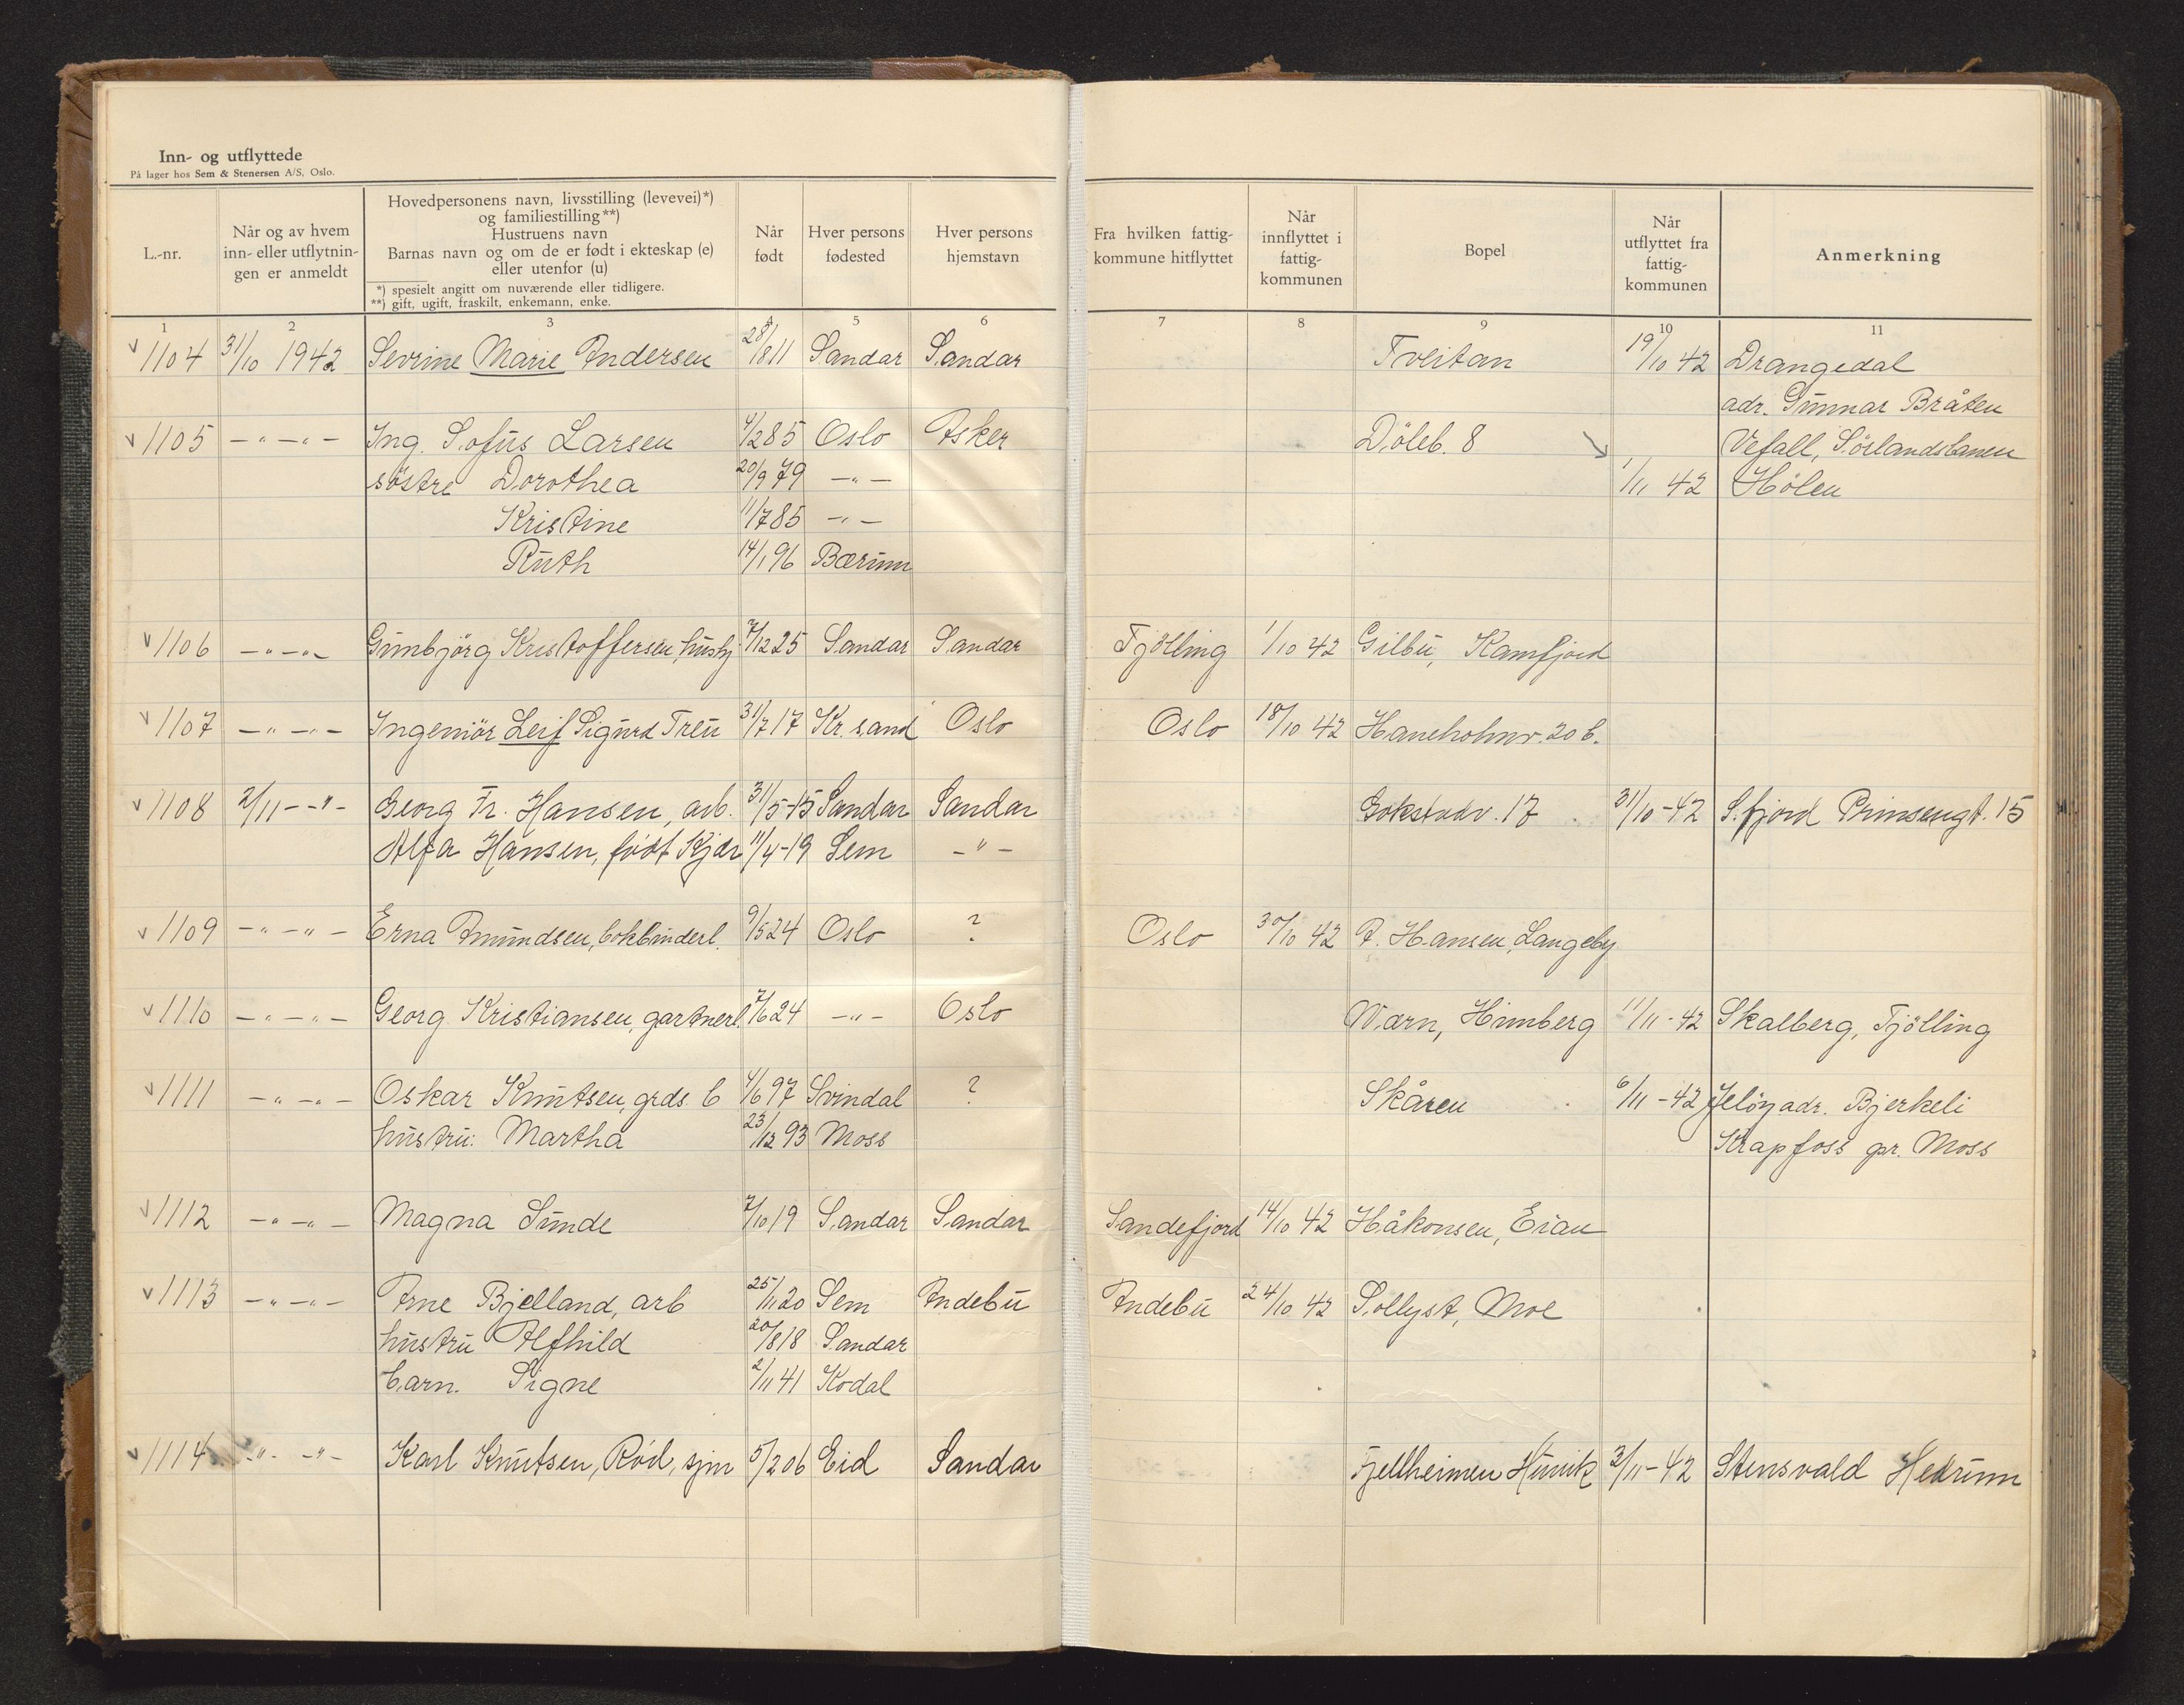 Inn- og utflyttede
På lager hos Sem & Stenersen A/S, Oslo.
L.-nr.
Når og av hvem
inn- eller utflytnin-
gen er anmeldt
Hovedpersonens navn, livsstilling (levevei)*)
og familiestilling**)
Hustruens navn
Barnas navn og om de er født i ekteskap (e)
eller utenfor (u)
*) spesielt angitt om nuværende eller tidligere.
**) gift, ugift, fraskilt, enkemann, enke.
Når
født
Hver persons
fødested
Hver persons
hjemstavn
Fra hvilken fattig-
kommune hitflyttet
Når
innflyttet i
fattig-
kommunen
Bopel
Når
utflyttet fra
fattig-
kommunen
Anmerkning
1 2 3 4 5 6 7 8 9 10 11
v 1104 31/10 1942 Sevrine Marie Andersen 28/1811 Sandar Sandar Tveitan 19/10 42 Drangedal
adr. Gunnar Bråten
v 1105 -"-"- Ing. Sofus Larsen 4/285 Oslo Asker Döleb. 8 Vefall, Sörlandsbanen
søstre Dorothea 20/9 79 -"- 1/11 42 Hölen
Kristine 11/785 -"-
Ruth 14/1 96 Bærum
v 1106 -"-"- Gunbjörg Kristoffersen, hushj 7/12 25 Sandar Sandar Tjölling 1/10 42 Gilbu, Kamfjord
v 1107 -"-"- Ingeniör Leif Sigurd Treu 31/7 17 Kr.sand Oslo Oslo 18/10 42 Haneholmv. 20 b.
v 1108 2/11 -"- Georg Fr. Hansen, arb. 31/5-15 Sandar Sandar Gokstadv. 17 31/10-42 S.fjord Prinsengt. 15
Alfa Hansen, født Kjær 11/4-19 Sem -"-
v 1109 -"-"- Erna Amundsen, bokbinderl. 9/5 24 Oslo ? Oslo 30/10 42 A. Hansen, Langeby
v 1110 -"-"- Georg Kristiansen, gartnerl. 7/6 24 -"- Oslo Warn, Himberg 11/11-42 Skalberg, Tjölling
v 1111 -"-"- Oskar Knutsen, grds. b 4/6 97 Svindal ? Skåren 6/11-42 Jelöy adr. Bjerkeli
hustru: Martha 23/12 93 Moss Krapfoss pr. Moss
v 1112 -"-"- Magna Sunde 7/10 19 Sandar Sandar Sandefjord 14/10 42 Håkonsen, Eian
v 1113 -"-"- Arne Bjelland, arb 25/11 20 Sem Andebu Andebu 24/10 42 Sollyst, Moe
hustru Alfhild 20/8 18 Sandar
barn. Signe 2/11 41 Kodal
v 1114 -"- -"- Karl Knutsen, Rød, sjm 5/2 06 Eid Sandar Fjellheimen Hunik 3/11-42 Stensvald Hedrum